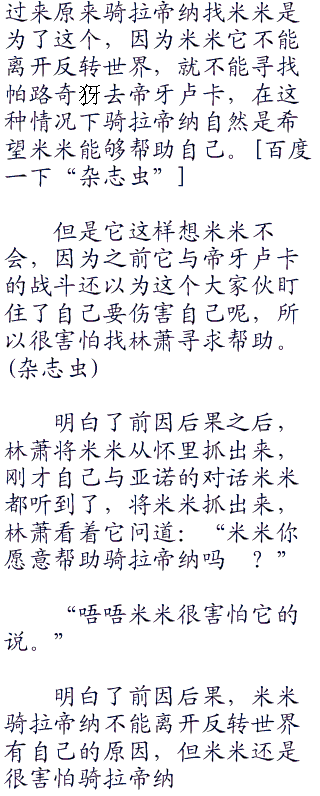 过来原来骑拉帝纳找米米是
为了这个，因为米米它不能
离开反转世界，就不能寻找
帕路奇犽去帝牙卢卡，在这
种情况下骑拉帝纳自然是希
望米米能够帮助自己。[百度
一下“杂志虫”]
但是它这样想米米不
会，因为之前它与帝牙卢卡
的战斗还以为这个大家伙盯
住了自己要伤害自己呢，所
以很害怕找林萧寻求帮助。
(杂志虫)
明白了前因后果之后，
林萧将米米从怀里抓出来，
刚才自己与亚诺的对话米米
都听到了，将米米抓出来，
林萧看着它问道：“米米你
愿意帮助骑拉帝纳吗　？”
“唔唔米米很害怕它的
说。”
明白了前因后果，米米
骑拉帝纳不能离开反转世界
有自己的原因，但米米还是
很害怕骑拉帝纳